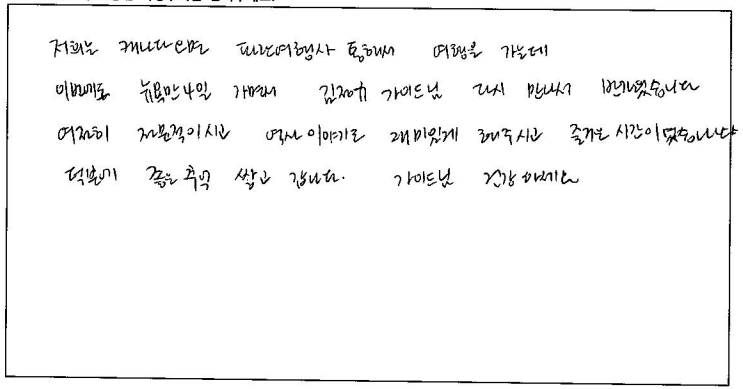 저희는 캐나다오면 파란여행사 통해서 여행을 가는데
이번에도 뉴욕만 4일 가면서 김재규 가이드님 다시 만나서 반가웠습니다
여전히 전문적이시고 역사 이야기도 재미있게 해주시고 즐거운 시간이 됐습니다
덕분에 좋은 추억 쌓고 갑니다. 가이드님 건강하세요